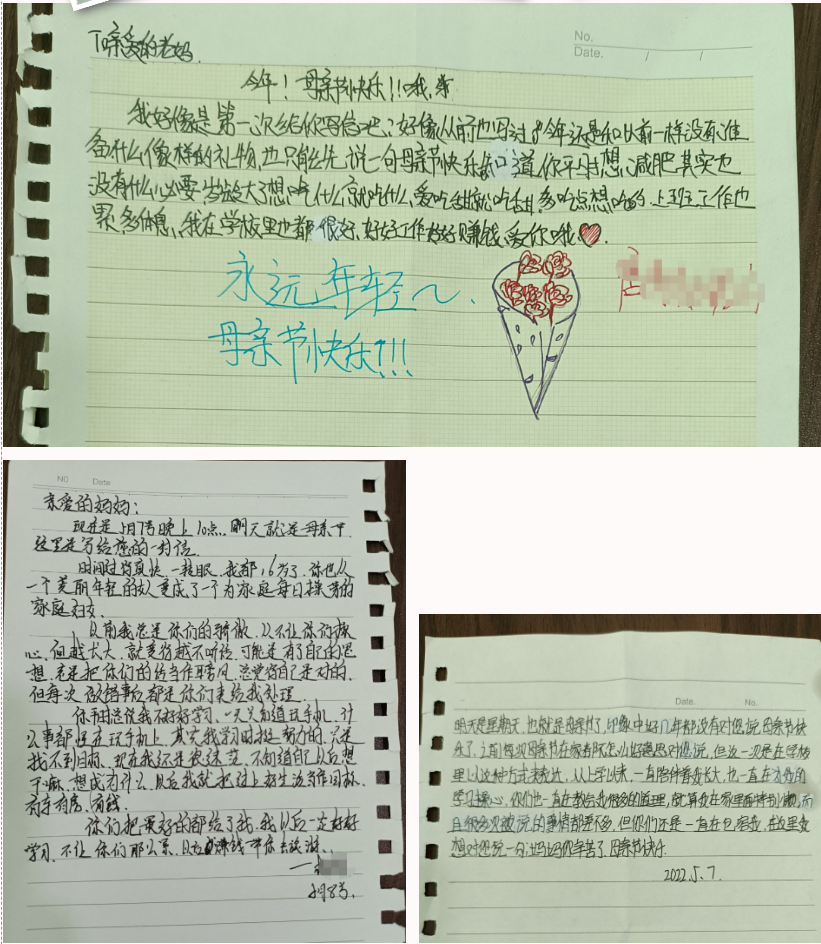 No.
Date. / /
To亲爱的老妈.
今年!母亲节快乐!!哦.亲
我好像是第一次给你写信吧,好像从前也写过,今年还是和以前一样没有准
备什么像样的礼物,也只能先说一句母亲节快乐知道你平时想减肥其实也
没有什么必要岁数大了想吃什么就吃什么,爱吃甜就吃甜,多吃点想吃的.上班工作也
累,多休息,我在学校里也都很好.好好工作好好赚钱,爱你哦
永远年轻~.
母亲节快乐!!!
NO Date
亲爱的妈妈:
现在是5月7号晚上10点.明天就是母亲节
这里是写给您的一封信.
时间过得真快,一转眼.我都16岁了.你也从
一个美丽年轻的女变成了一个为家庭每日操劳的
家庭妇女.
以前我总是你们的骄傲.从不让你们操
心,但越长大.就变得越不听话.可能是有了自己的思
想.老是把你们的话当作耳旁风.总觉得自己是对的.
但每次做错事后都是你们来给我处理.
你平时总说我不好好学习.一天天知道玩手机.什
么事都怪在玩手机上.其实我学习时挺努力的.只是
找不到目标.现在我还是很迷茫.不知道自己以后想
干嘛.想成为什么.以后我就把过上好生活当作目标.
有车有房.有钱.
你们把最好的都给了我.我以后一定好好
学习.不让你们那么累.以后赚钱带你去旅游.
5月8号.
Date. No.
明天是星期天,也就是母亲节了,印象中好几年都没有对您说母亲节快
乐了,之前每次母亲节在家都不怎么好意思对您说,但这一次是在学校
里以这种方式来表达,从上学以来,一直陪伴着我长大,也一直在为我的
学习操心,你们也一直在教会我很多的道理,就算我在家里面特别懒,而
且很多次被说的事情都差不多,但你们还是一直在包容我,在这里我
想对您说一句:妈妈你辛苦了.母亲节快乐.
2022.5.7.